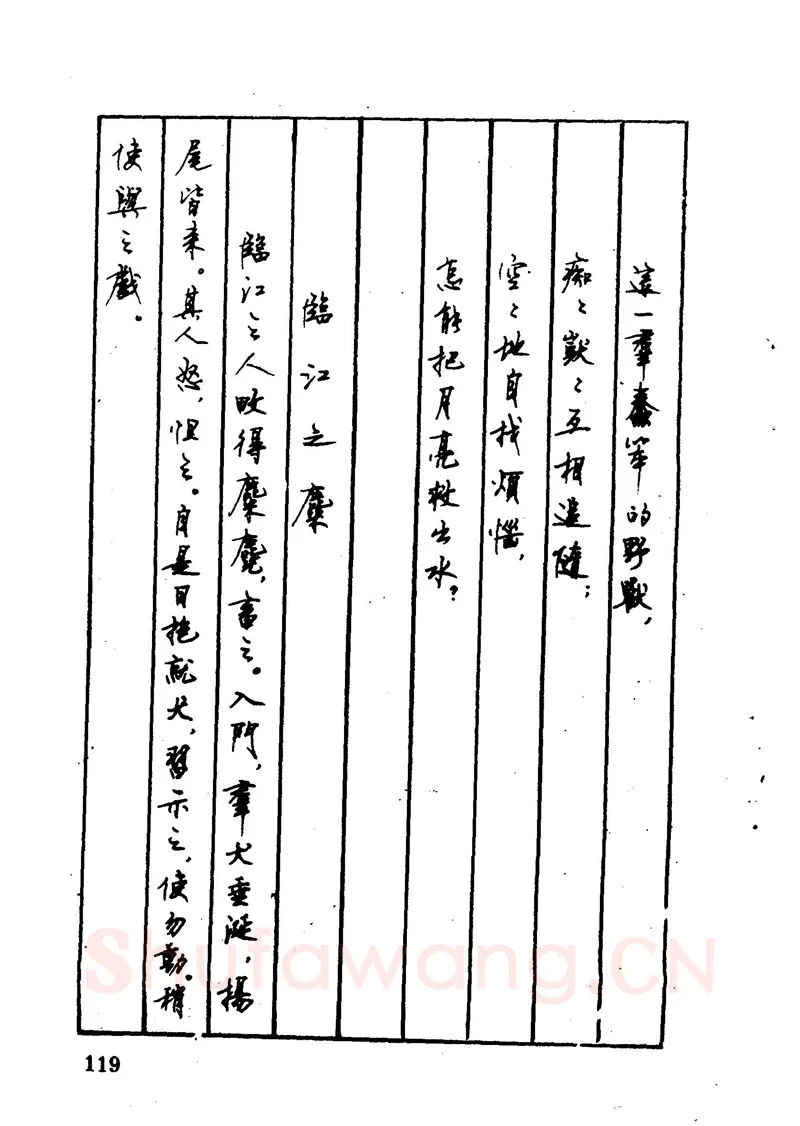 這一羣蠢笨的野獸，
痴〻獃〻互相追隨；
空〻地自找煩惱，
怎能把月亮救出水？
臨江之麋
臨江之人畋得麋麑，畜之。入門，羣犬垂涎，揚
尾皆來。其人怒，怛之。自是日抱就犬，習示之，使勿動。稍
使與之戲。
119
Shufawang.CN